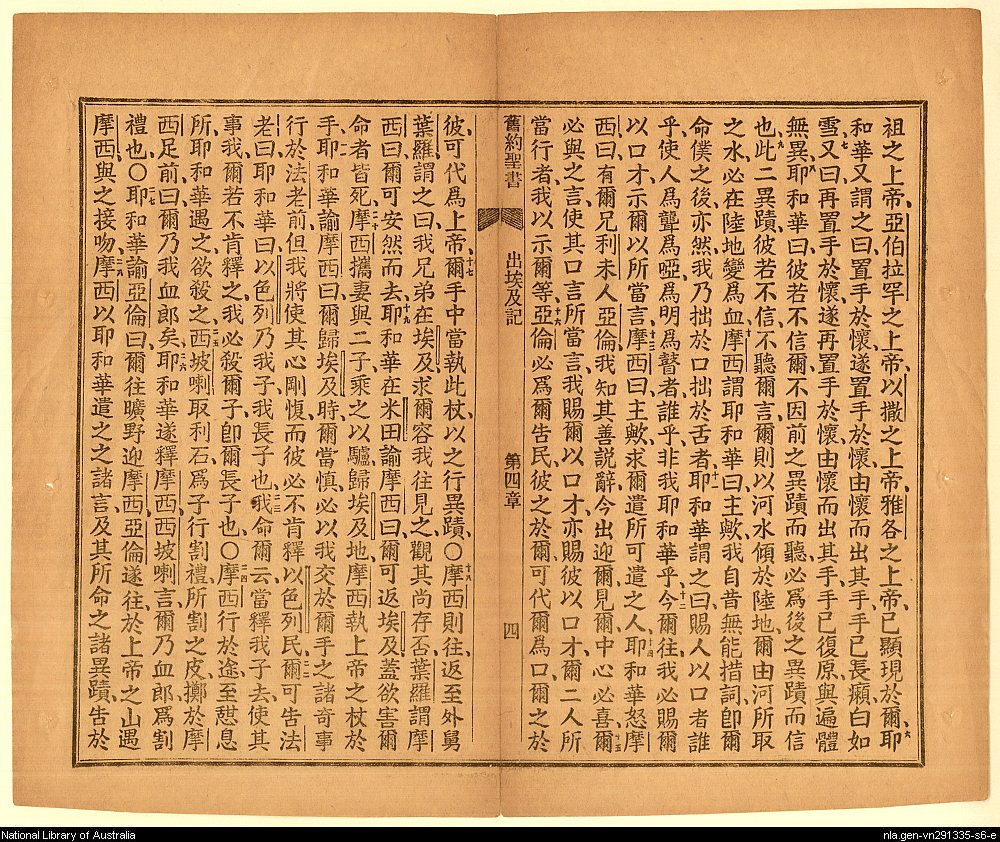 祖之上帝亞伯拉罕之上帝以撒之上帝雅各之上帝已顯現於爾六耶
和華又謂之曰置手於懷遂置手於懷由懷而出其手手已長癩白如
雪七又曰再置手於懷遂再置手於懷由懷而出其手手已復原與遍體
無異八耶和華曰彼若不信爾不因前之異蹟而聽必爲後之異蹟而信
也九此二異蹟彼若不信不聽爾言爾則以河水傾於陸地爾由河所取
之水必在陸地變爲血十摩西謂耶和華曰主歟我自昔無能措詞卽爾
命僕之後亦然我乃拙於口拙於舌者十一耶和華謂之曰賜人以口者誰
乎使人爲聾爲啞爲明爲瞽者誰乎非我耶和華乎十二今爾往我必賜爾
以口才示爾以所當言十三摩西曰主歟求爾遣所可遣之人十四耶和華怒摩
西曰有爾兄利未人亞倫我知其善說辭今出迎爾見爾中心必喜十五爾
必與之言使其口言所當言我賜爾以口才亦賜彼以口才爾二人所
當行者我以示爾等十六亞倫必爲爾告民彼之於爾可代爾爲口爾之於
舊約聖書 出埃及記 第四章 四
彼可代爲上帝十七爾手中當執此杖以之行異蹟〇十八摩西則往返至外舅
葉羅謂之曰我兄弟在埃及求爾容我往見之觀其尚存否葉羅謂摩
西曰爾可安然而去十九耶和華在米田諭摩西曰爾可返埃及蓋欲害爾
命者皆死二十摩西攜妻與二子乘之以驢歸埃及地摩西執上帝之杖於
手二一耶和華諭摩西曰爾歸埃及時爾當愼必以我交於爾手之諸奇事
行於法老前但我將使其心剛愎而彼必不肯釋以色列民二二爾可告法
老曰耶和華曰以色列乃我子我長子也二三我命爾云當釋我子去使其
事我爾若不肯釋之我必殺爾子卽爾長子也〇二四摩西行於途至憇息
所耶和華遇之欲殺之二五西坡喇取利石爲子行割禮所割之皮擲於摩
西足前曰爾乃我血郎矣二六耶和華遂釋摩西西坡喇言爾乃血郎爲割
禮也〇二七耶和華諭亞倫曰爾往曠野迎摩西亞倫遂往於上帝之山遇
摩西與之接吻二八摩西以耶和華遣之之諸言及其所命之諸異蹟告於
National Library of Australia
nla.gen-vn291335-s6-e